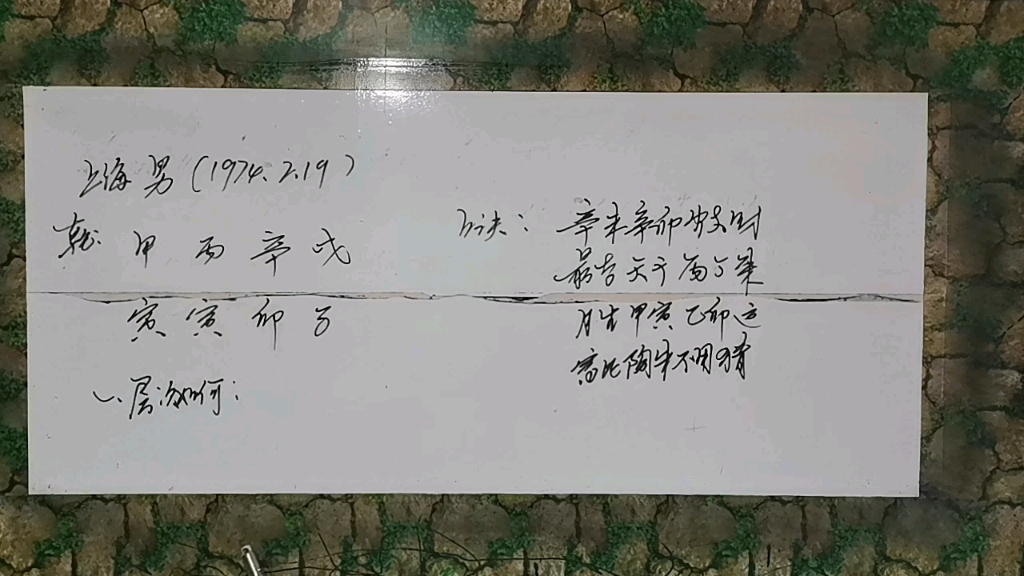 上海男(1974.2.19)
乾 甲 丙 辛 戊
寅 寅 卯 子
一、层次如何:
口诀: 辛未辛卯坐支财
最喜天干丙丁来
月生甲寅乙卯运
富比陶朱不用猜